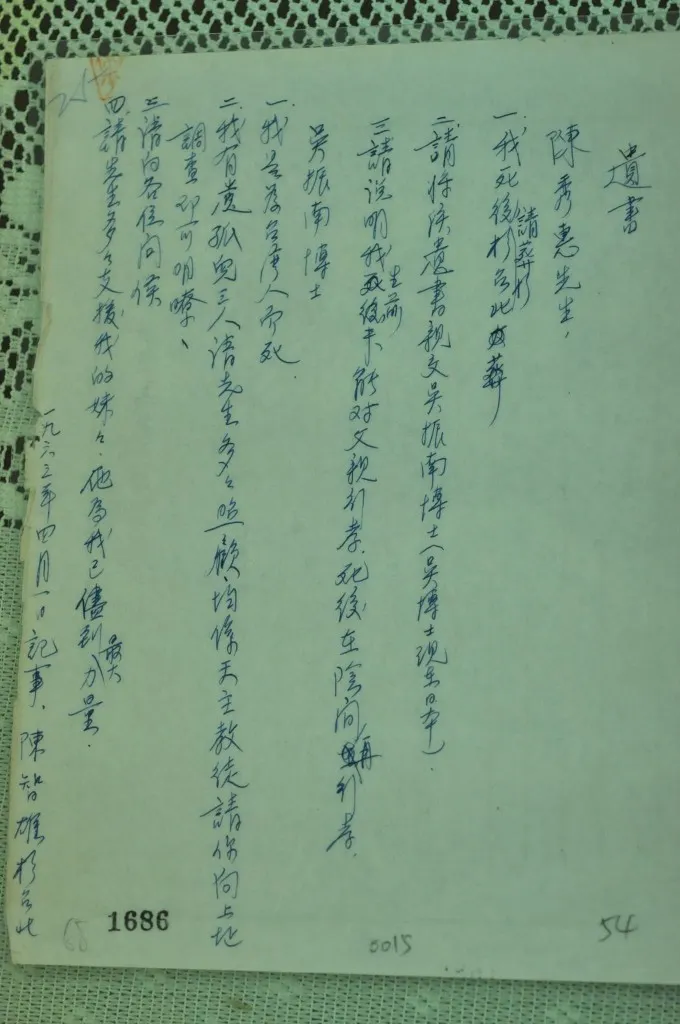 遺書
陳秀惠先生,
一.我死後請葬於台北
二.請將該遺書親交吳振南博士(吳博士現在日本).
三.請說明我生前不能对父親行孝.死後在陰間再行孝.
吳振南博士
一.我是為台灣人而死.
二.我有遺孤兒三人請先生多々照顧.均係天主教徒請你向上地
調查即可明瞭、
三.請向各位問侯
四.請先生多々支援我的妹々.他為我已儘到最大力量.
一九六三年四月一日記事.陳智雄於台北
1686
0015
54